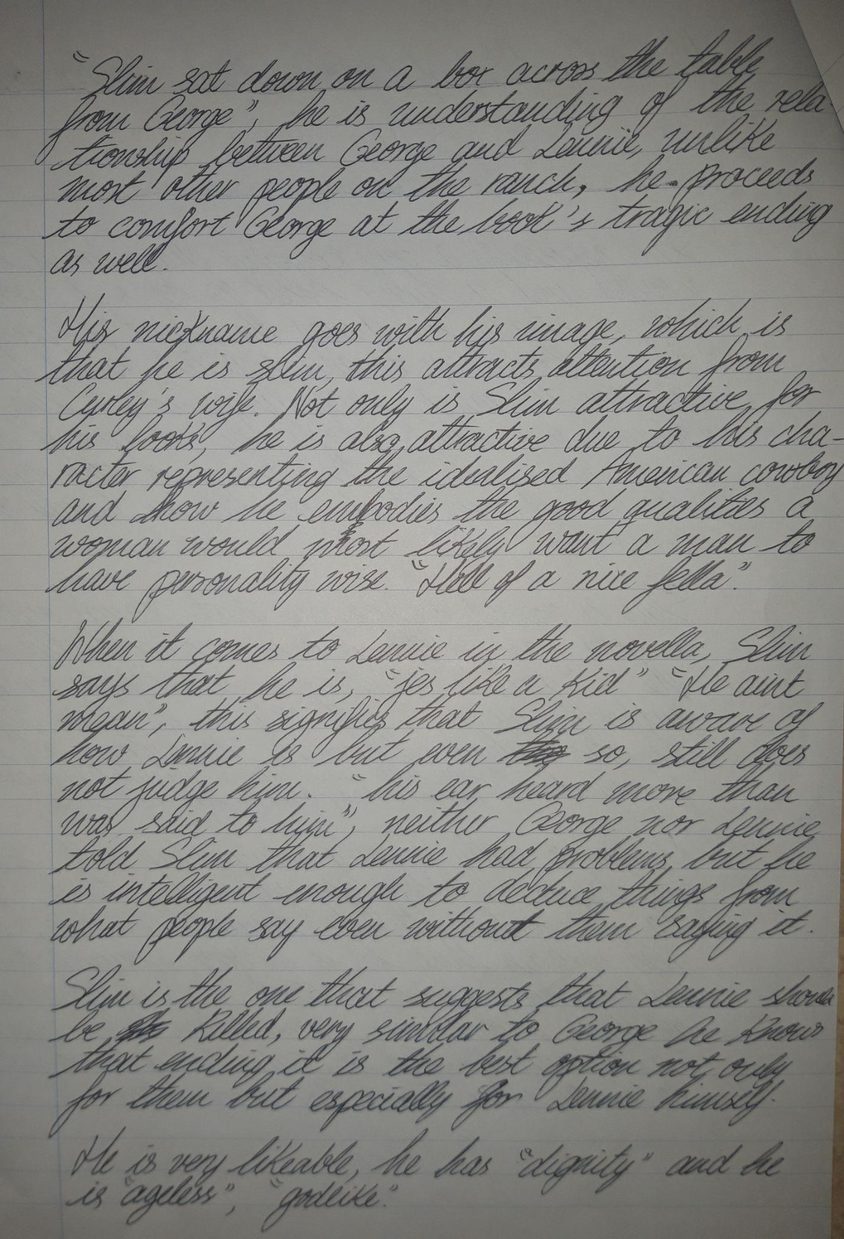 "Slim sat down on a box across the table
from George", he is understanding of the rela-
tionship between George and Lennie, unlike
most other people on the ranch, he proceeds
to comfort George at the book's tragic ending
as well.
His nickname goes with his image, which is
that he is slim, this attracts attention from
Curley's wife. Not only is Slim attractive for
his looks, he is also attractive due to his cha-
racter representing the idealised American cowboy
and how he embodies the good qualities a
woman would most likely want a man to
have personality wise. "Hell of a nice fella".
When it comes to Lennie in the novella, Slim
says that he is, "jes like a kid" "He aint
mean", this signifies that Slim is aware of
how Lennie is but even so, still does
not judge him. "his ear heard more than
was said to him", neither George nor Lennie
told Slim that Lennie had problems, but he
is intelligent enough to deduce things from
what people say even without them saying it.
Slim is the one that suggests that Lennie should
be killed, very similar to George he knows
that ending it is the best option not only
for them but especially for Lennie himself.
He is very likeable, he has "dignity" and he
is "ageless", "godlike".